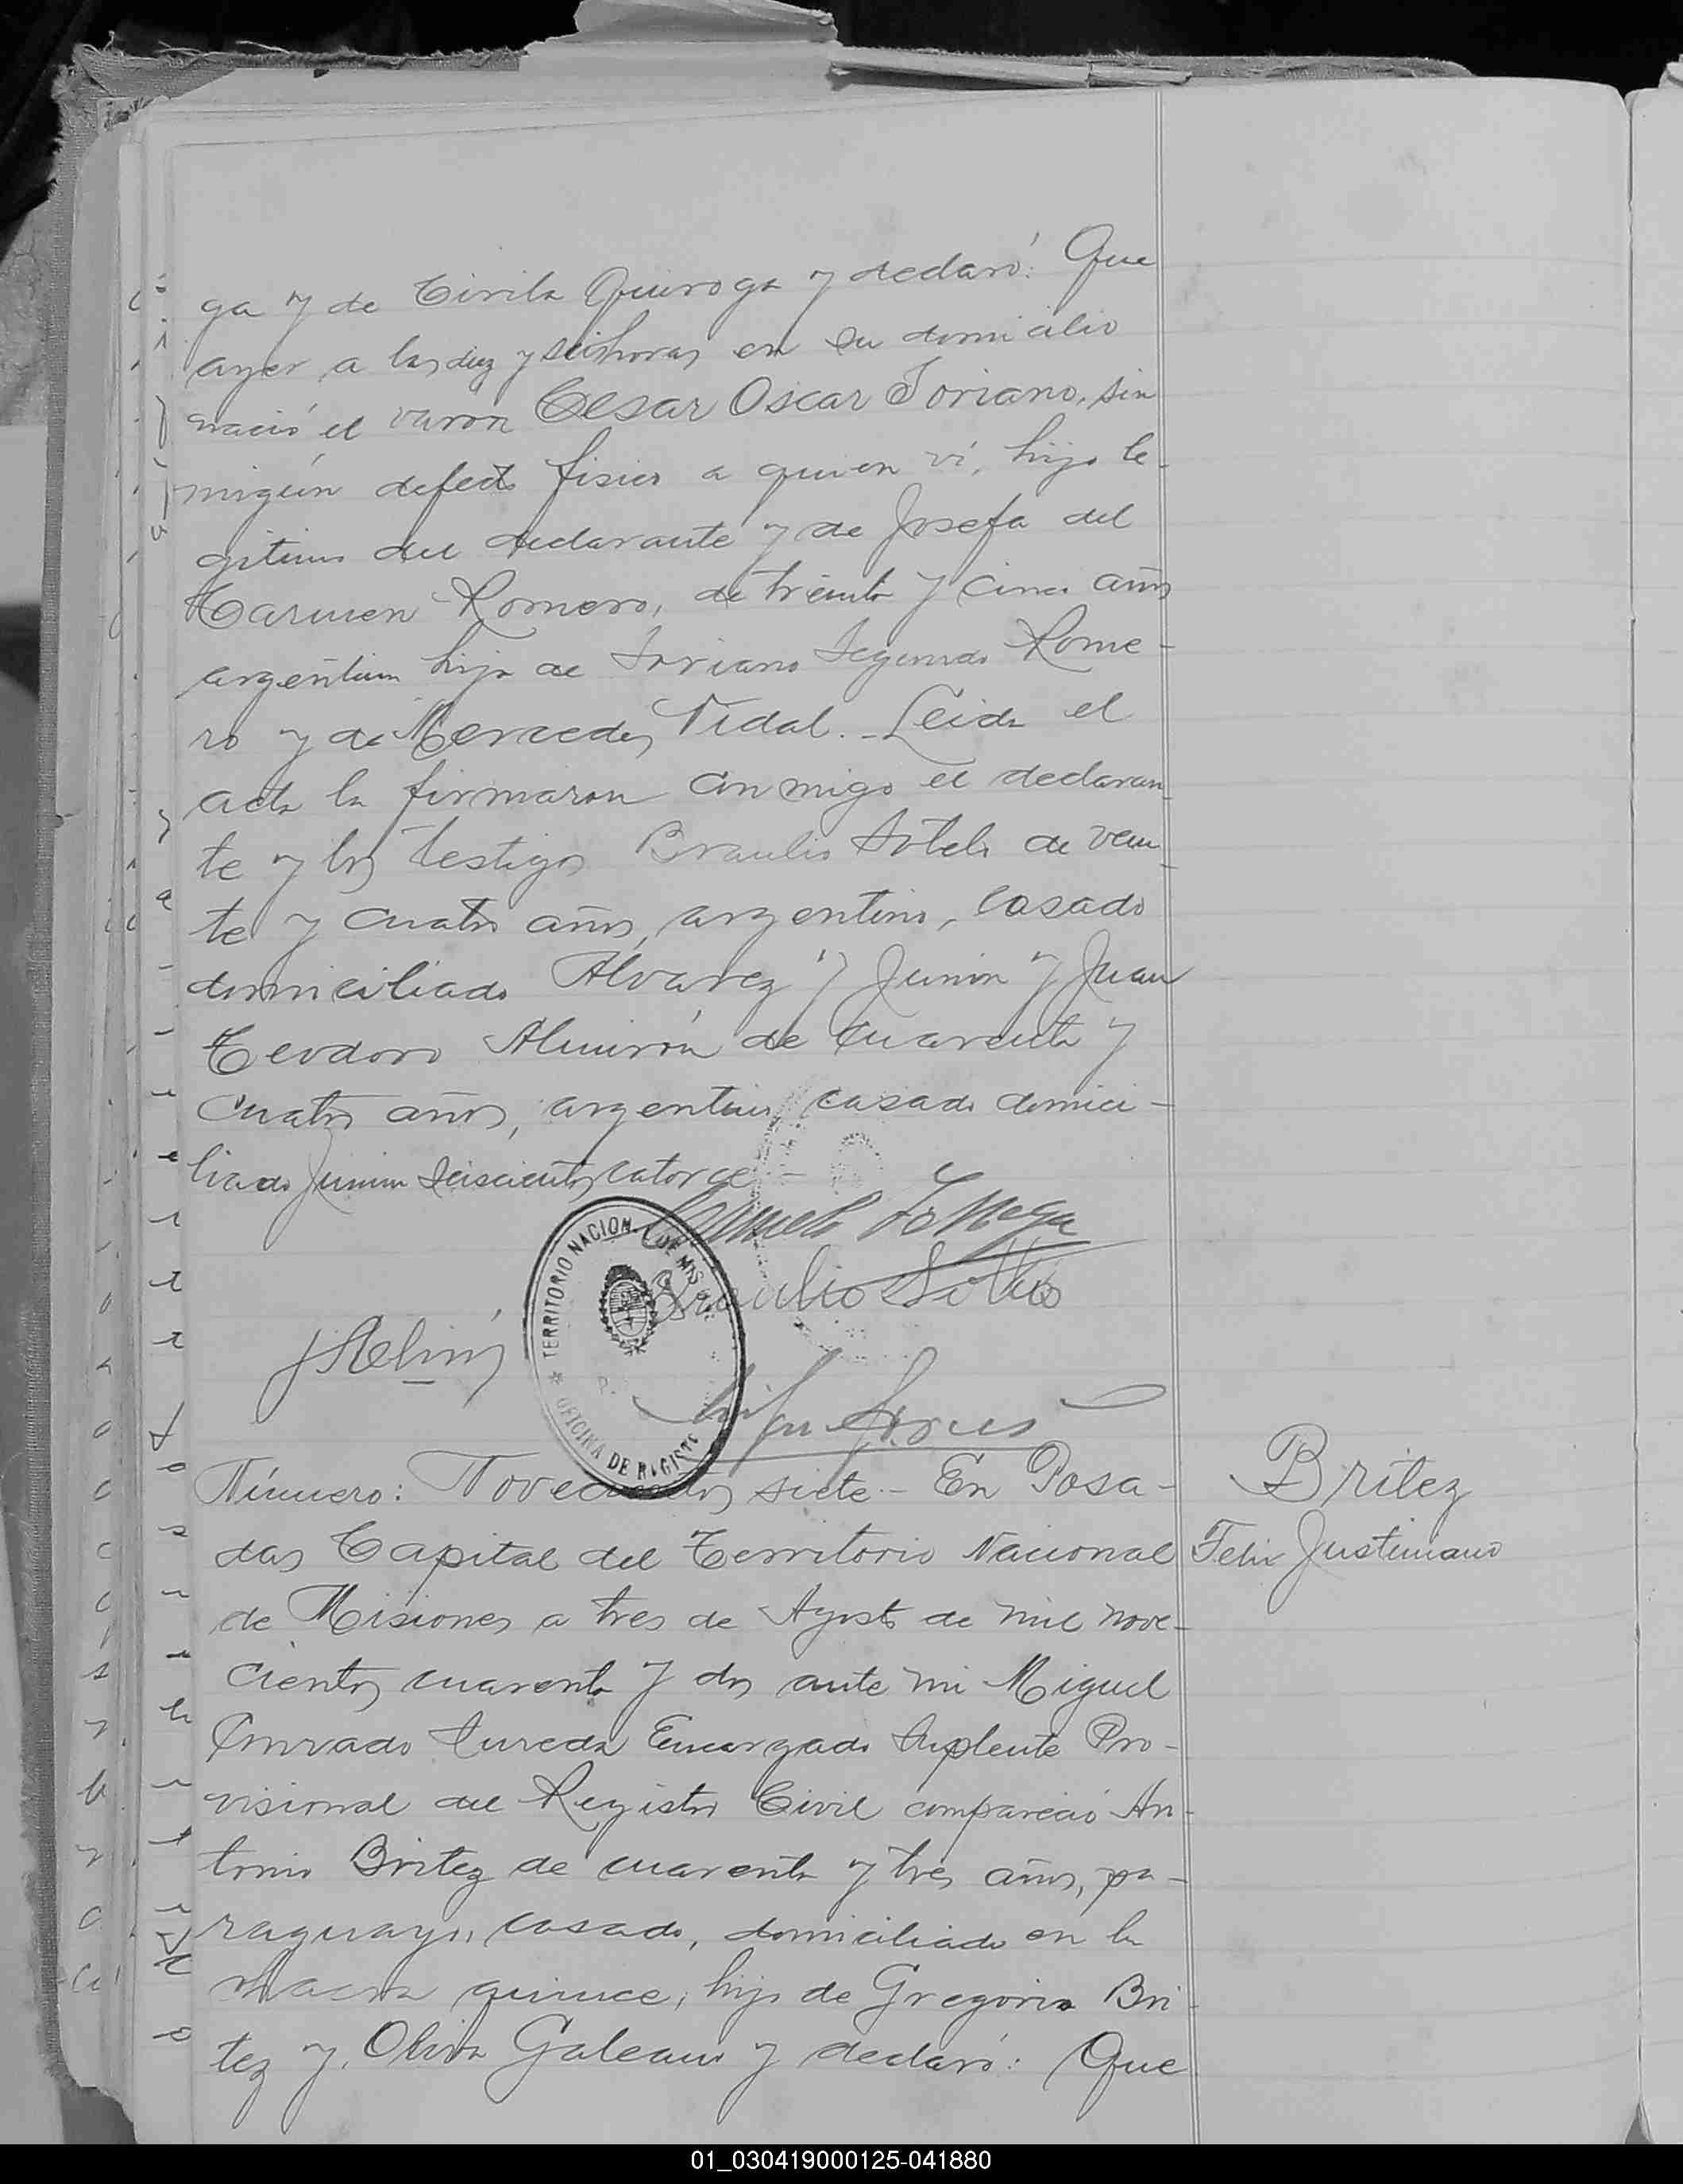 ga y de Civila Quiroga y declaró: Que
ayer a las diez y seis horas en su domicilio
nació el varon Cesar Oscar Soriano, sin
ningún defecto fisico a quien ví, hijo le-
gitimo del declarante y de Josefa del
Carmen Romero, de treinta y cinco años
argentina hija de Soriano Segundo Rome-
ro y de Mercedes Vidal. - Leida el
acta la firmaron conmigo el declaran-
te y los testigos Braulio Sotelo de vein-
te y cuatro años, argentino, casado
domiciliado Alvarez y Junin y Juan
Teodoro Almirón de cuarenta y
cuatro años, argentino casado domici-
liado Junin seiscientos catorce -
Braulio Sotelo
TERRITORIO NACIONAL DE MIS
OFICINA DE REGISTRO
Número: Novecientos siete - En Posa-
das Capital del Territorio Nacional
de Misiones a tres de Agosto de mil nove-
cientos cuarenta y dos ante mi Miguel
Conrado Lureda Encargado Suplente Pro-
visional del Registro Civil compareció An-
tonio Britez de cuarenta y tres años, pa-
raguayo, casado, domiciliado en la
chacra quince, hijo de Gregorio Bri-
tez y Oliva Galeano y declaró: Que
Britez
Felix Justiniano
01_030419000125-041880